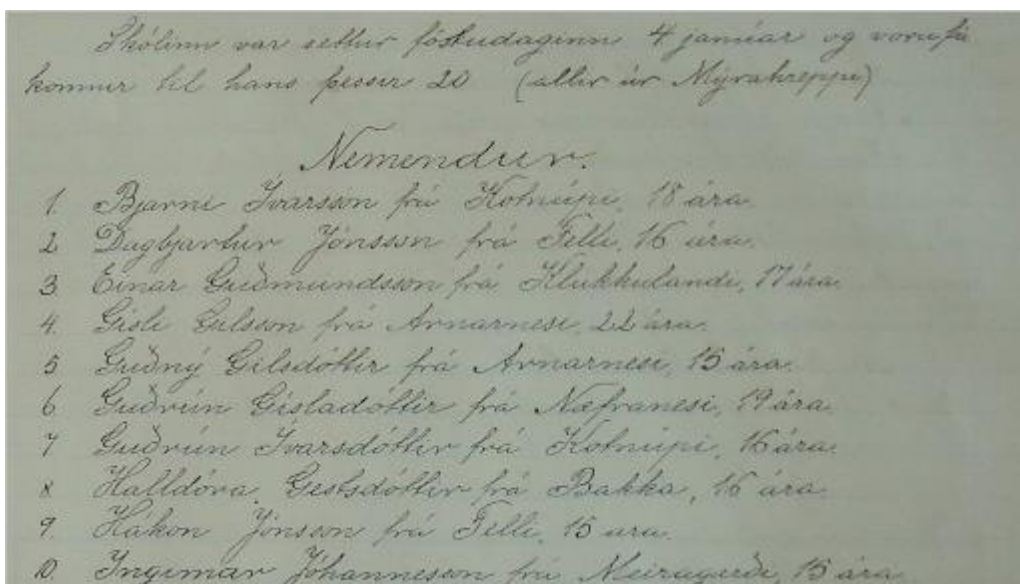 Skólinn var settur föstudaginn 4 janúar og voru þá
komnir til hans þessir 20 (allir úr Mýrahreppi)
Nemendur.
1. Bjarni Ívarsson frá Kotnúpi, 18 ára.
2 Dagbjartur Jónsson frá Felli, 16 ára.
3. Einar Guðmundsson frá Klukkulandi, 17 ára.
4. Gísli Gilsson frá Arnarnesi, 22 ára.
5 Guðný Gilsdóttir frá Arnarnesi, 15 ára.
6 Guðrún Gísladóttir frá Næfranesi, 19 ára.
7 Guðrún Ívarsdóttir frá Kotnúpi, 16 ára.
8 Halldóra Gestsdóttir frá Bakka, 16 ára.
9. Hákon Jónsson frá Felli, 15 ára.
10. Ingimar Jóhannesson frá Meiragarði, 15 ára